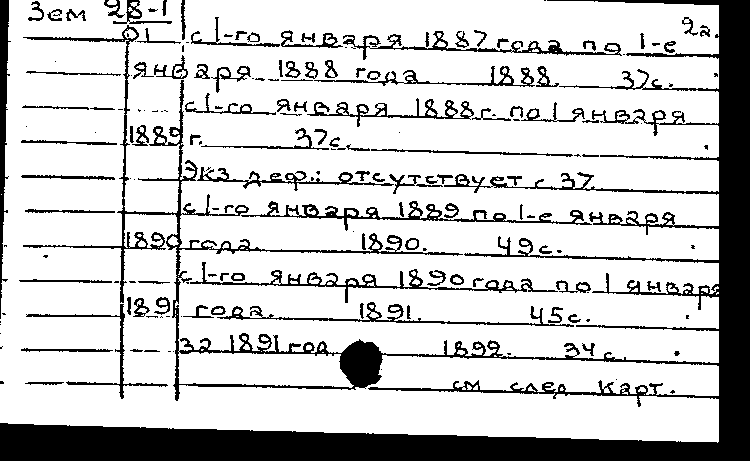 Зем 28-1 2а.
01 с 1-го января 1887 года по 1-е
января 1888 года. 1888. 37с.
с 1-го января 1888г. по 1 января
1889 г. 37с.
Экз деф.: отсутствует с 37.
с 1-го января 1889 по 1-е января
1890 года. 1890. 49с.
с 1-го января 1890 года по 1 января
1891 года. 1891. 45с.
за 1891 год 1892. 34с.
см след карт.